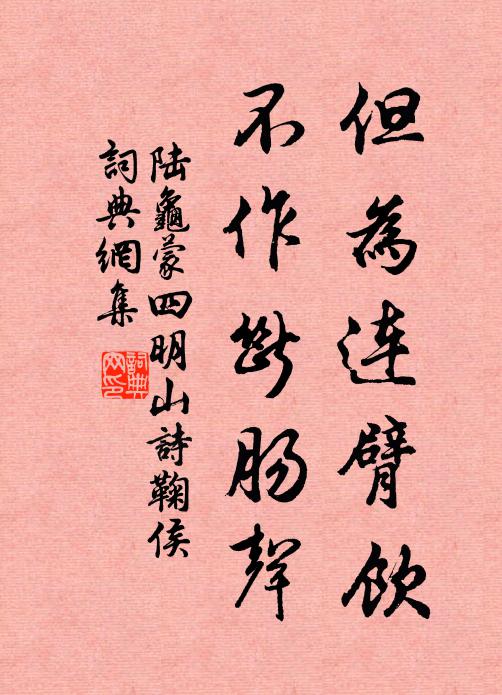 但為連臂飲
不作斷腸聲
陸龜蒙四明山詩鞠侯
詞典網集
詞典網印